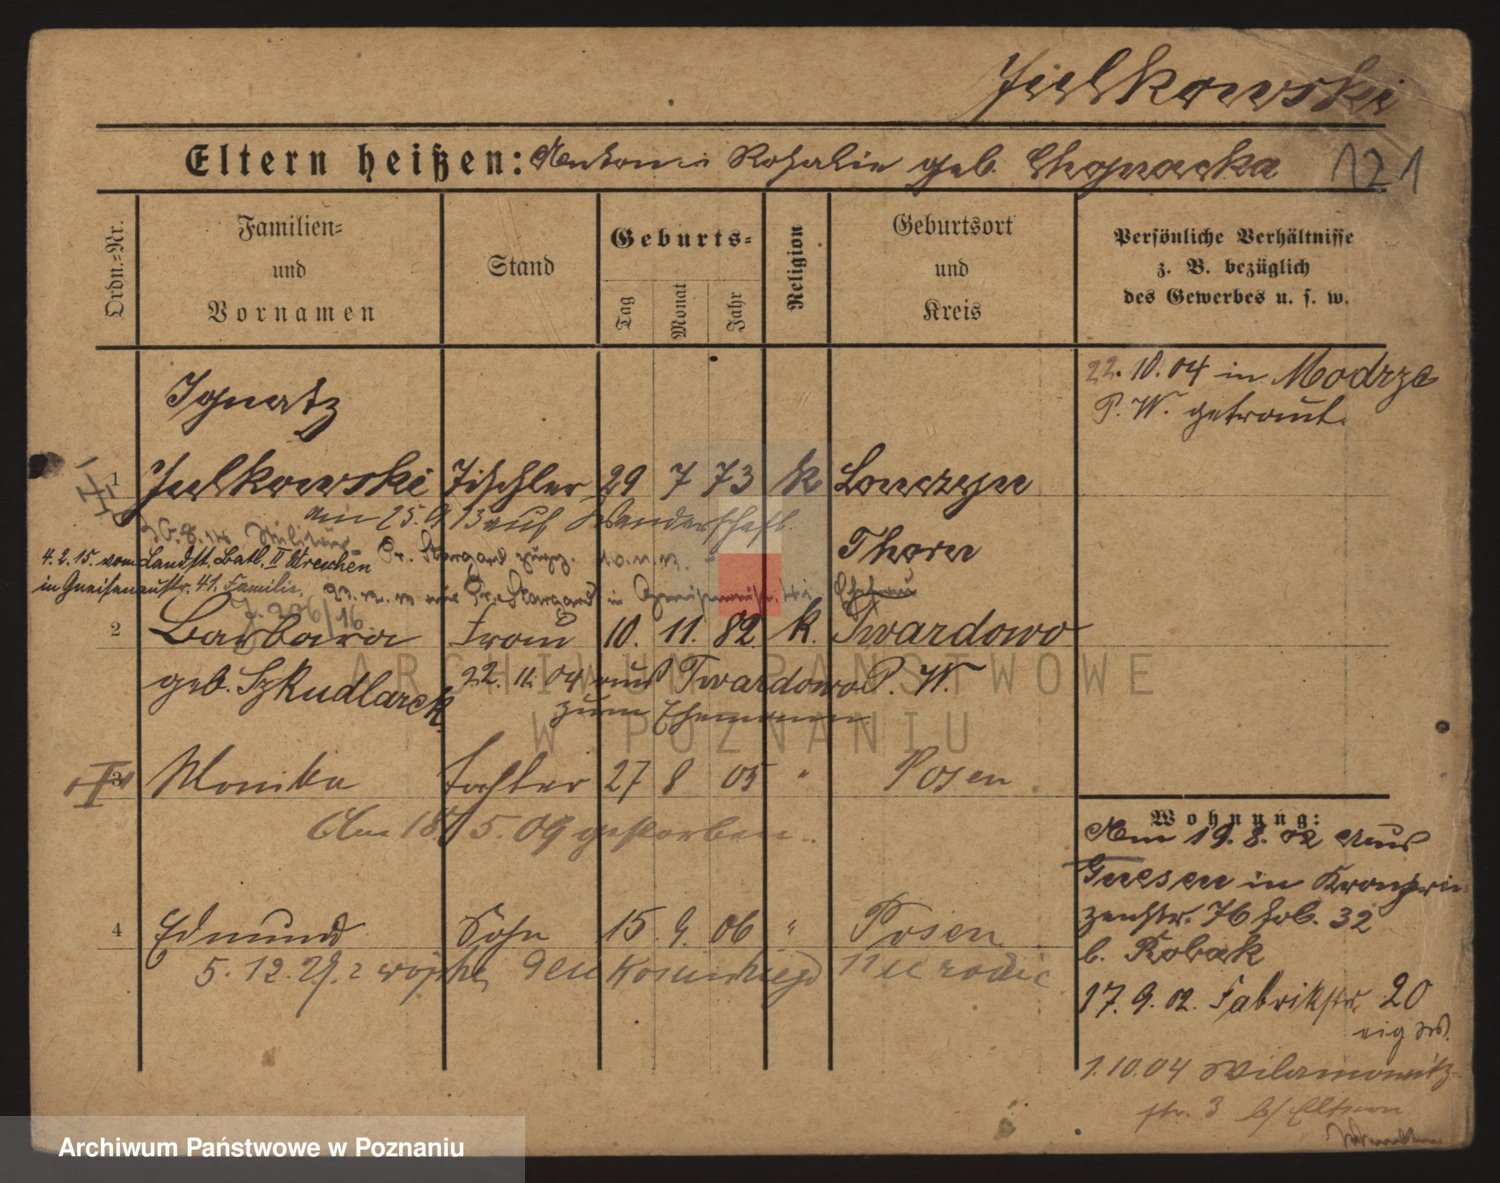 Julkowski
Eltern heißen: Antoni Rosalie geb. Chojnacka 121
Ordn.-Nr.
Familien-
und
Vornamen
Stand
Geburts-
Tag
Monat
Jahr
Religion
Geburtsort
und
Kreis
Persönliche Verhältnisse
z. B. bezüglich
des Gewerbes u. s. w.
22. 10. 04 in Modrze
P. W. getraut.
Ignatz
1 Julkowski Tischler 29 7 73 k Lonczyn
am 25. 9. 13 auf Wanderschaft.
Thorn
30. 8. 14 Militär
Pr. Stargard 10. 11. 13.
4. 2. 15. vom Landst. Batl. II Wreschen
in Gneisenaustr. 41. Familie. 23. 12. 13 Pr. Stargard in Gneisenaustr. 41 Ehefrau
J. 206/16
2 Barbara Frau 10. 11. 82. k. Twardowo
geb. Szkudlarek 22. 11. 04 aus Twardowo P. W.
zum Ehemann
3 Monika Tochter 27 8 05 " Posen
Am 18. 5. 09 gestorben.
4 Edmund Sohn 15. 9. 06 " Posen
5. 12. 29.
Wohnung:
Am 19. 8. 02 aus
Gnesen in Kronprin
zenstr. 76 32
b. Robak
17. 9. 02. Fabrikstr. 20
1. 10. 04 Wilamowitz-
str. 3 b/ Eltern
ARCHIWUM PAŃSTWOWE
W POZNANIU
Archiwum Państwowe w Poznaniu